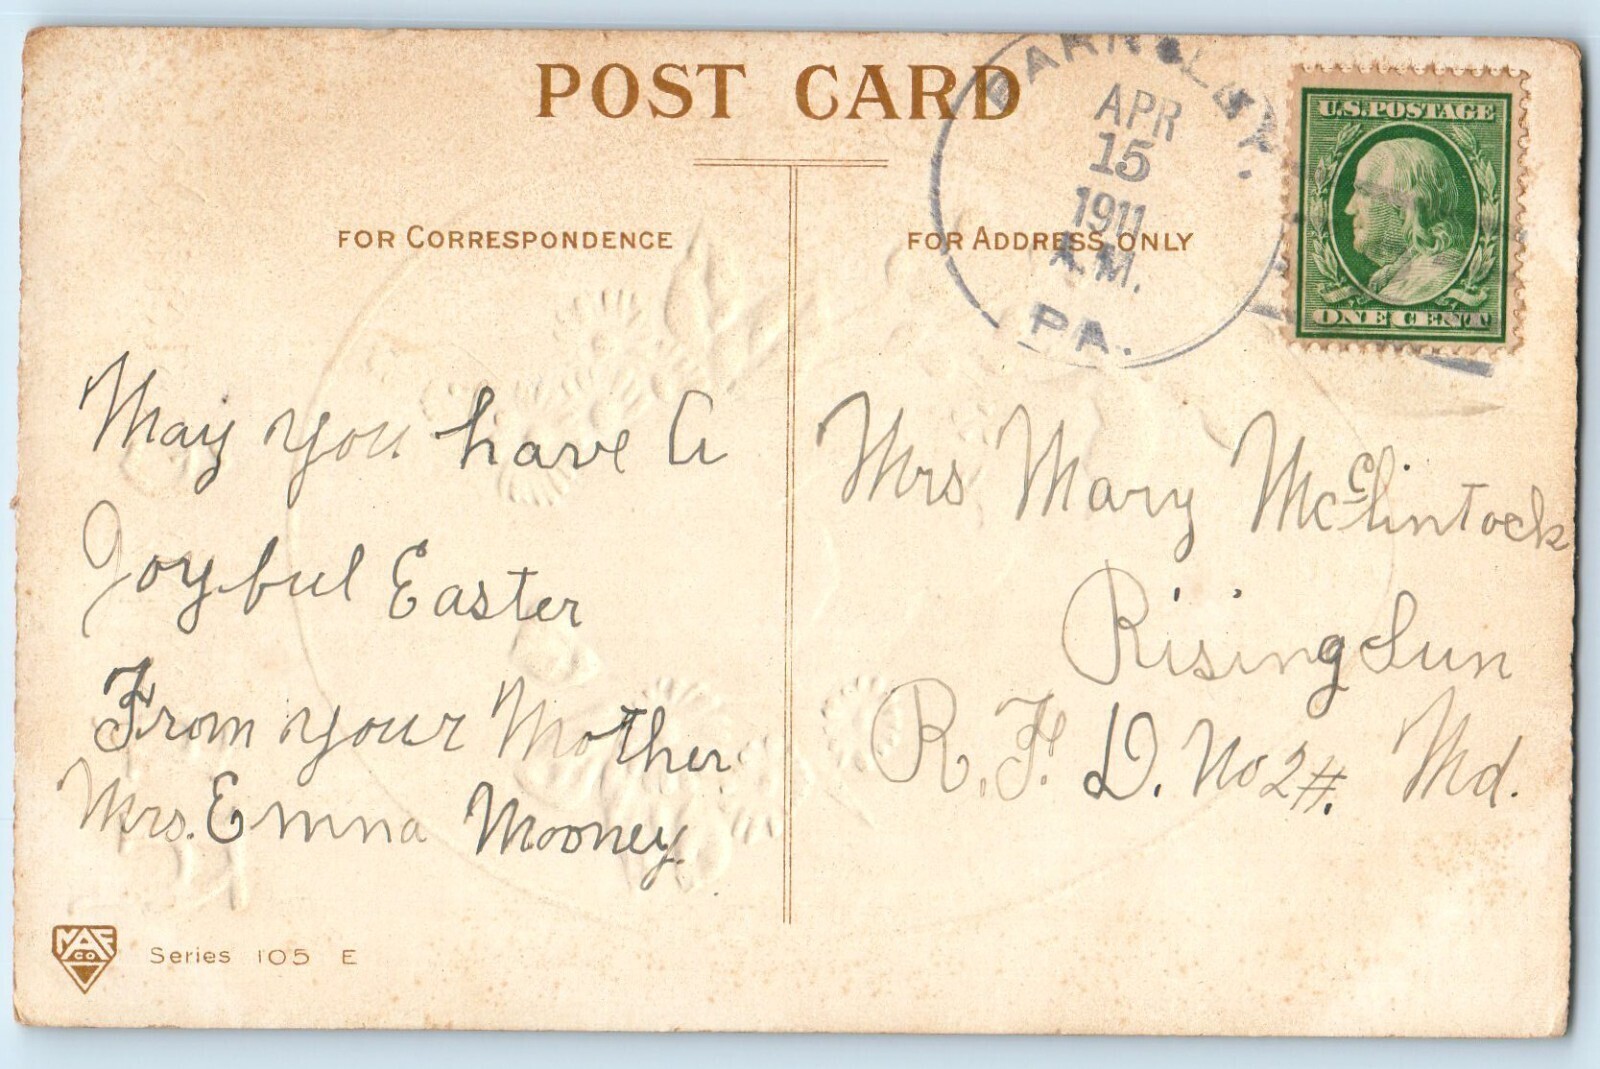 POST CARD
APR
15
1911
A.M.
PA.
U.S. POSTAGE
ONE CENT
FOR CORRESPONDENCE
FOR ADDRESS ONLY
May you have A
Joyful Easter
From your Mother
Mrs. Emma Mooney.
Mrs Mary McClintock
Rising Sun
R. F. D. No 2 #. Md.
MAF
CO
Series 105 E